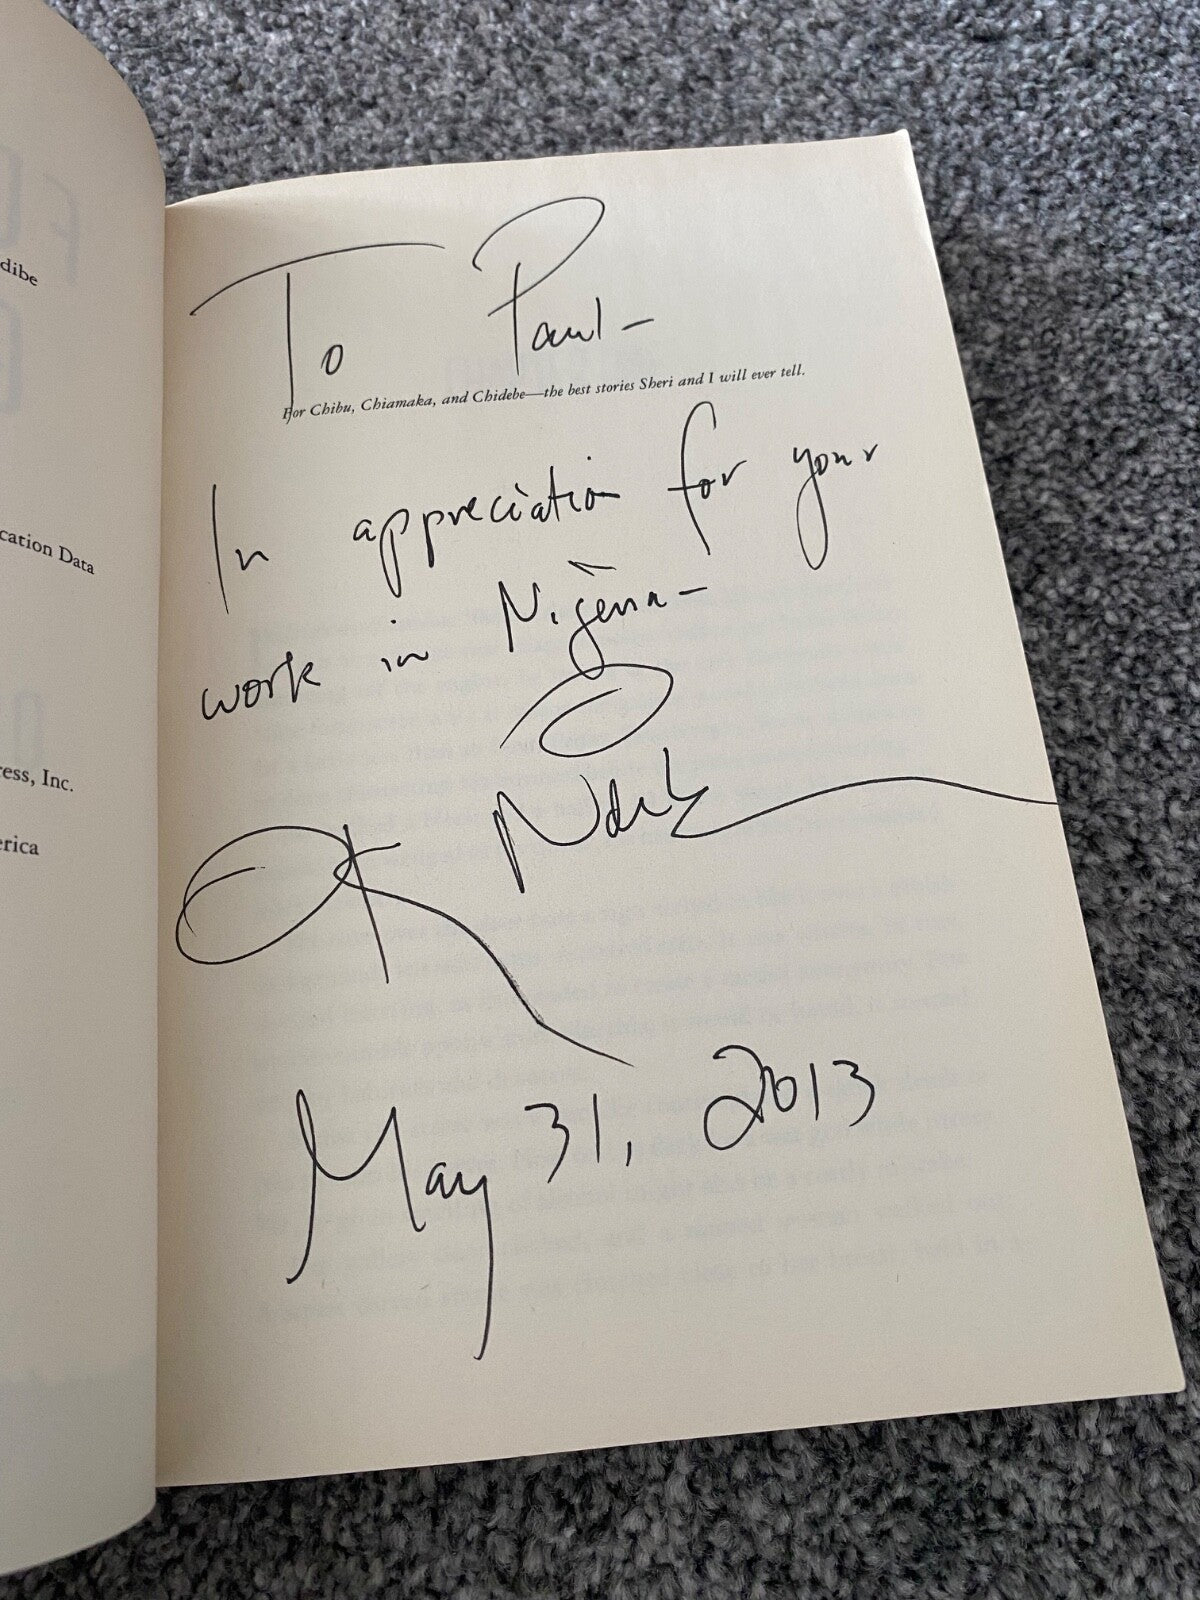 dibe
cation Data
ress, Inc.
erica
To Paul-
For Chibu, Chiamaka, and Chidebe—the best stories Sheri and I will ever tell.
In appreciation for your
work in Nigeria-
May 31, 2013